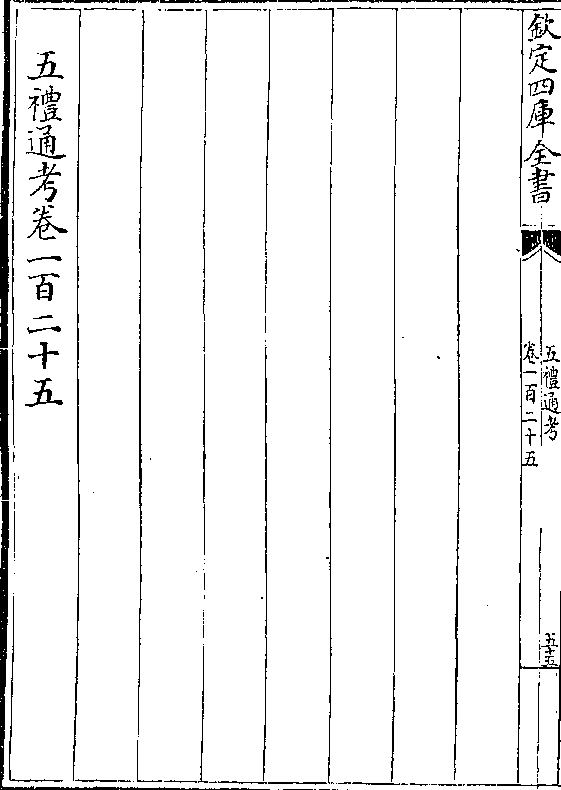 欽定四庫全書
五禮通考
卷一百二十五
五十五
五禮通考卷一百二十五